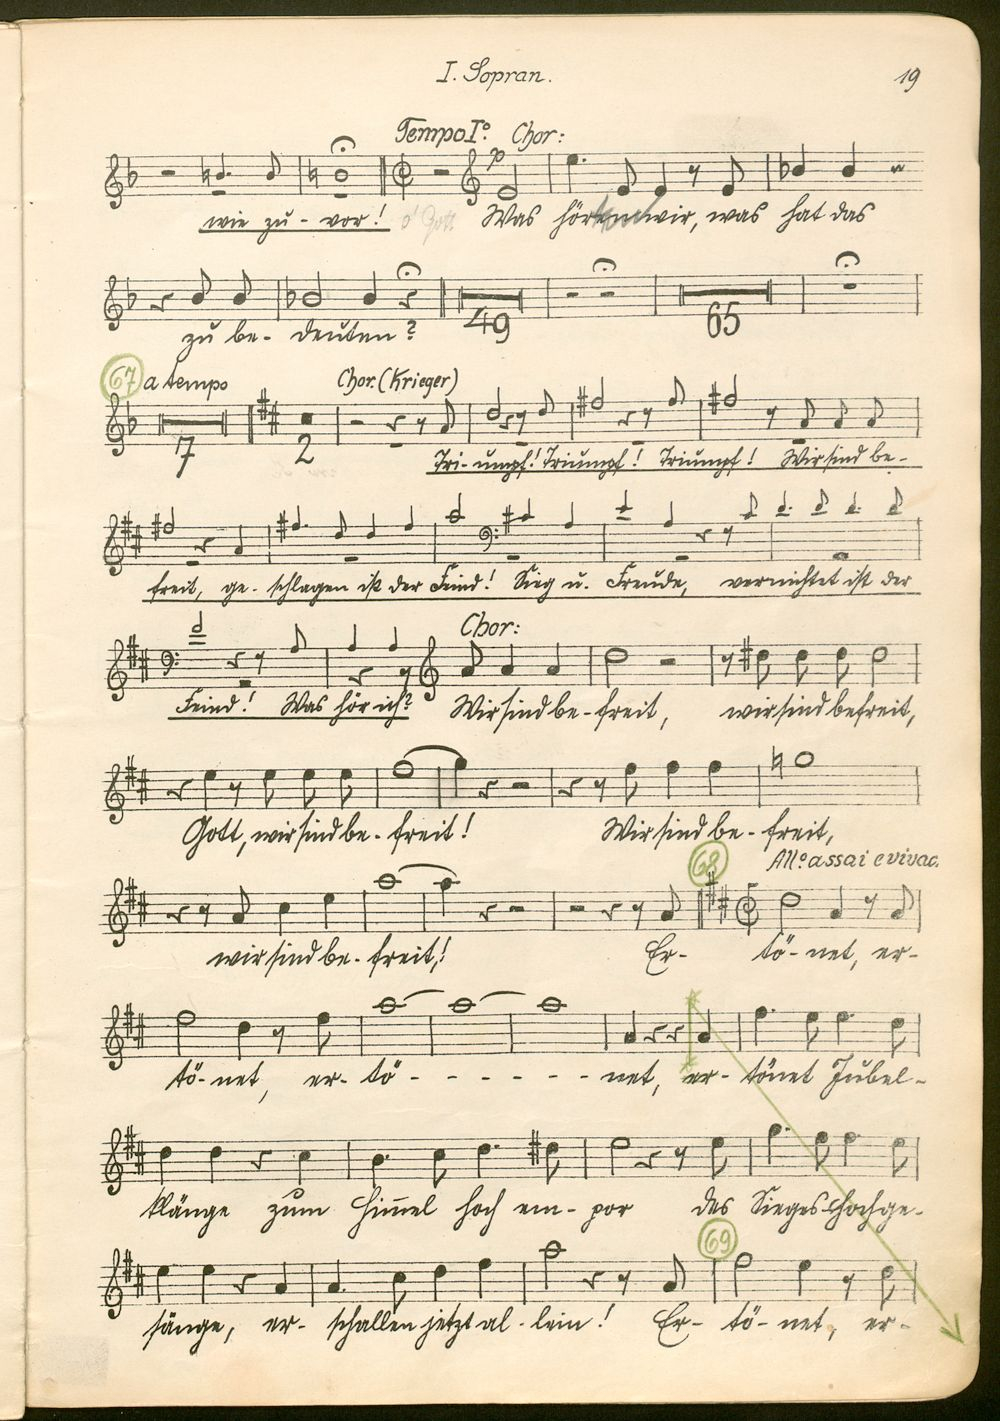 I. Sopran.
19
Tempo Iº. Chor:
p
wie zu - vor! o' Gott Was hören wir, was hat das
zu be - deuten?
49 65
67 a tempo Chor. (Krieger)
7 2
Tri - umpf! Triumpf! Triumpf! Wir sind be -
freit, ge - schlagen ist der Feind! Sieg u. Freude, vernichtet ist der
Chor:
Feind! Was hör ich? Wir sind be - freit, wir sind befreit,
Gott, wir sind be - freit! Wir sind be - freit,
68 All.º assai e vivac.
wir sind be - freit,! Er - tö - net, er -
tö - net, er - tö - - - - - - - net, er - tönet Jubel -
klänge zum Him̄el hoch em - por des Sieges Hochge -
69
sänge, er - schallen jetzt al - lein! Er - tö - net, er -